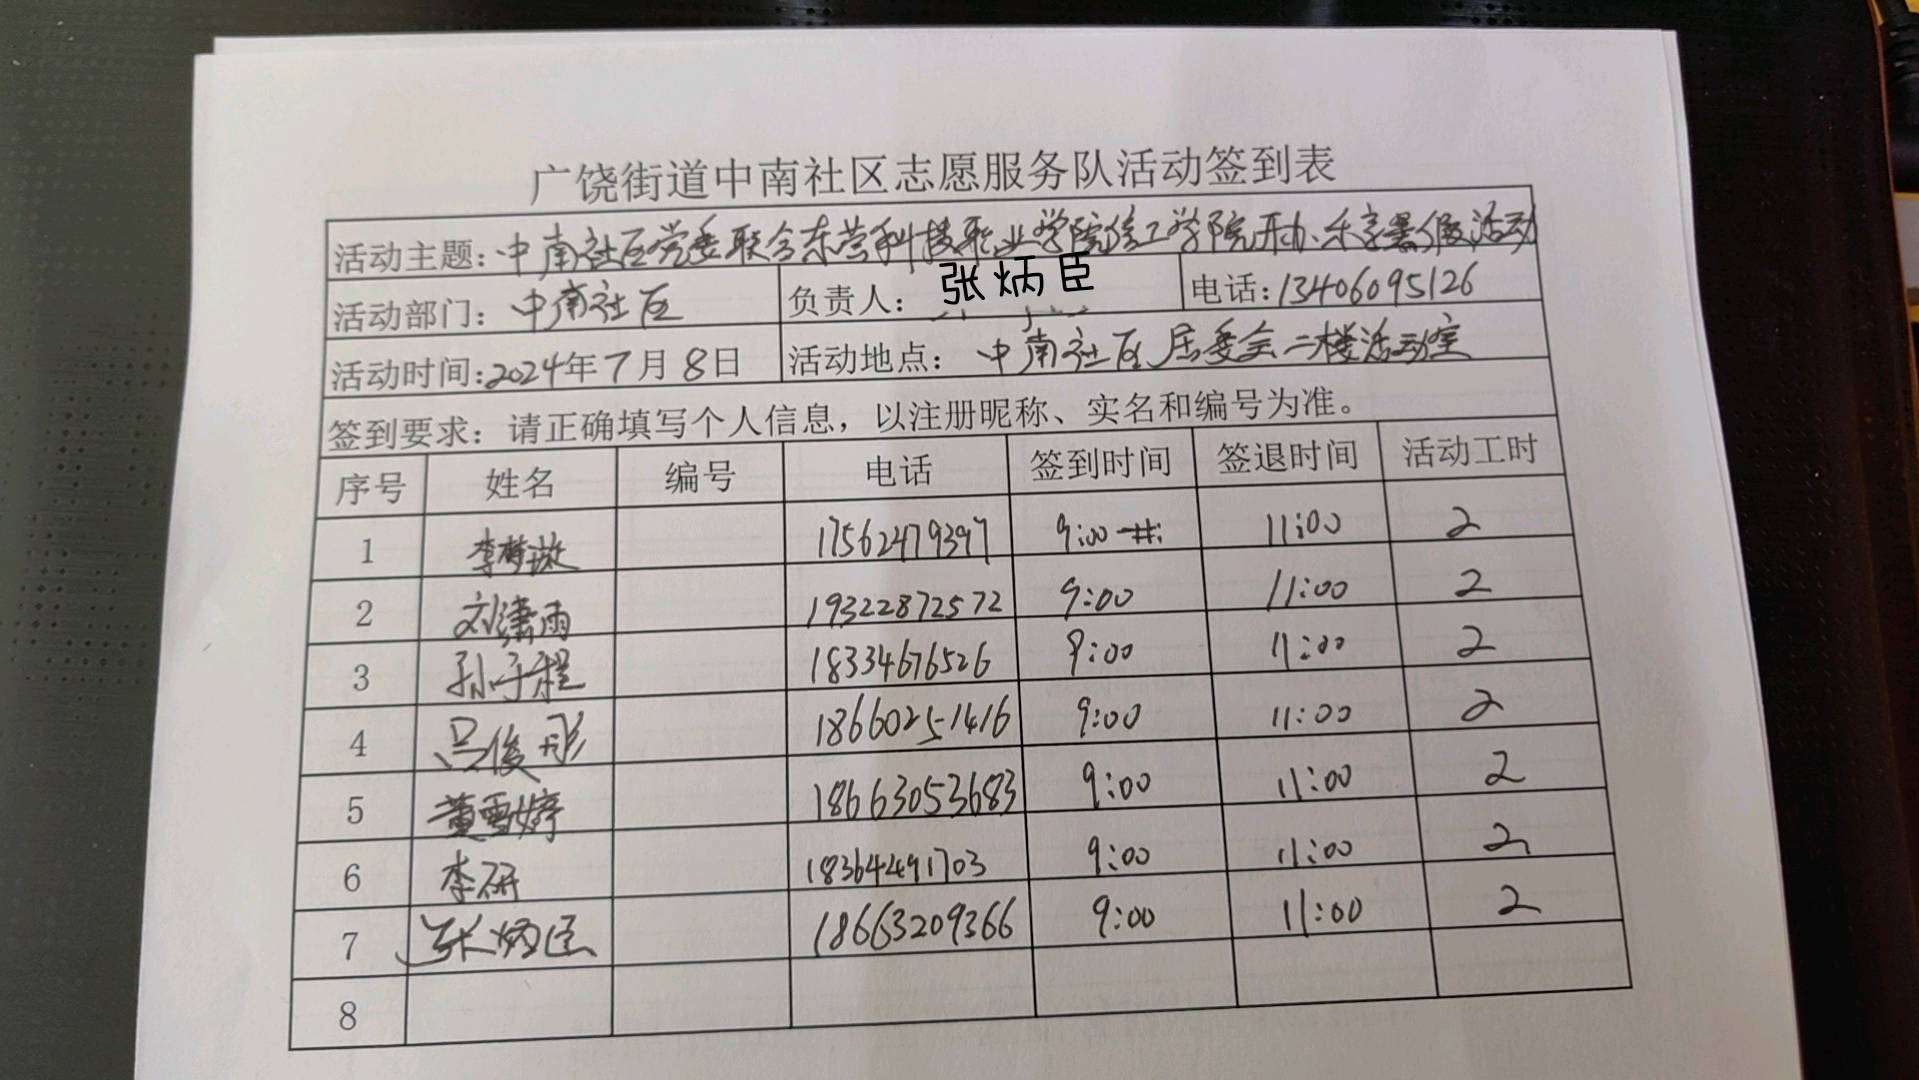 广饶街道中南社区志愿服务队活动签到表
活动主题:中南社区党委联合东营科技职业学院信工学院开办乐享暑假活动
活动部门:中南社区 负责人:张炳臣 电话:13406095126
活动时间:2024年7月8日 活动地点:中南社区居委会二楼活动室
签到要求:请正确填写个人信息,以注册昵称、实名和编号为准。
序号 姓名 编号 电话 签到时间 签退时间 活动工时
1 李梦 17562479397 9:00 11:00 2
2 刘潇雨 19322872572 9:00 11:00 2
3 孙子程 18334676526 9:00 11:00 2
4 吕俊彤 18660251416 9:00 11:00 2
5 董雪婷 18663053683 9:00 11:00 2
6 李研 18364491703 9:00 11:00 2
7 张炳臣 18663209366 9:00 11:00 2
8